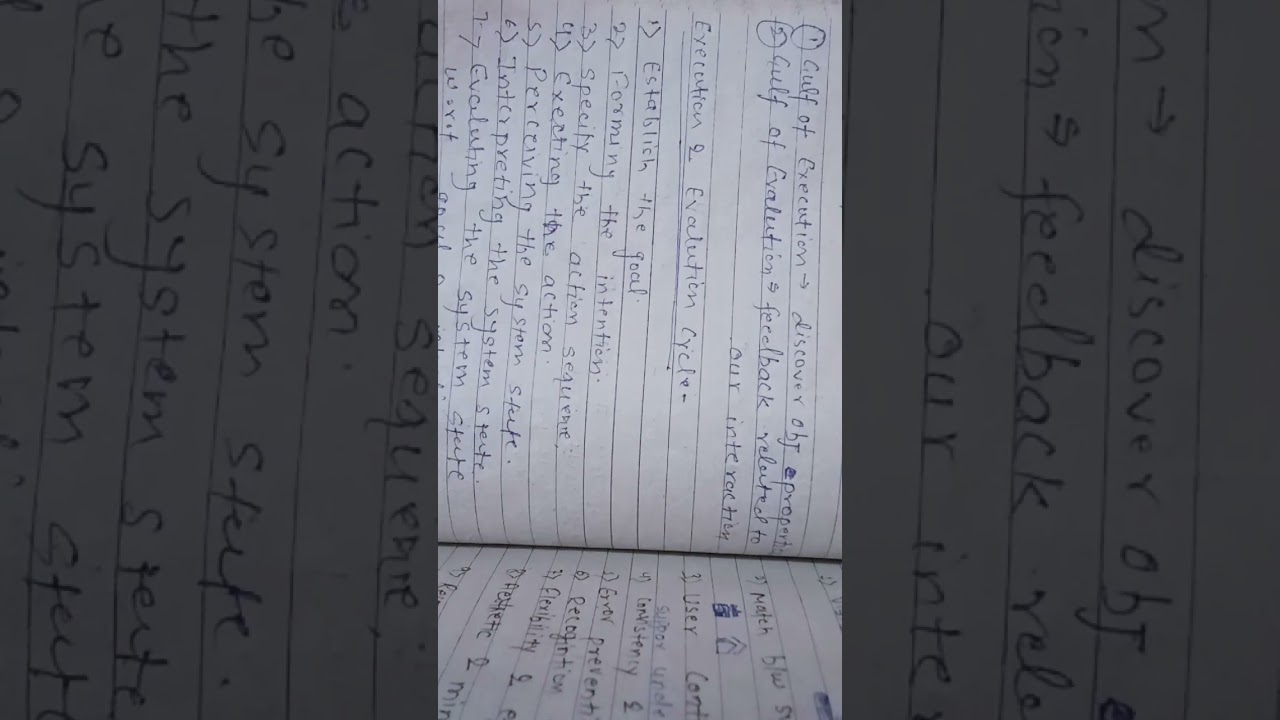 ① Gulf of Execution → discover obj properti
② Gulf of Evalution ⇒ feedback related to
our interaction
Execution & Evalution Cycle:-
1) Establich the goal.
2) Forming the intention.
3) specify the action sequene.
4) Exeating the action.
5) Perceiving the system state.
6) Interpreting the system state.
7) Evaluting the system state
w.r.t goal
2) Match b/w sy
3) User Cont
undo
4) Consistency &
5) Error preventi
6) Recogintion
7) flexibility & e
8) Aesthetic & min
9)